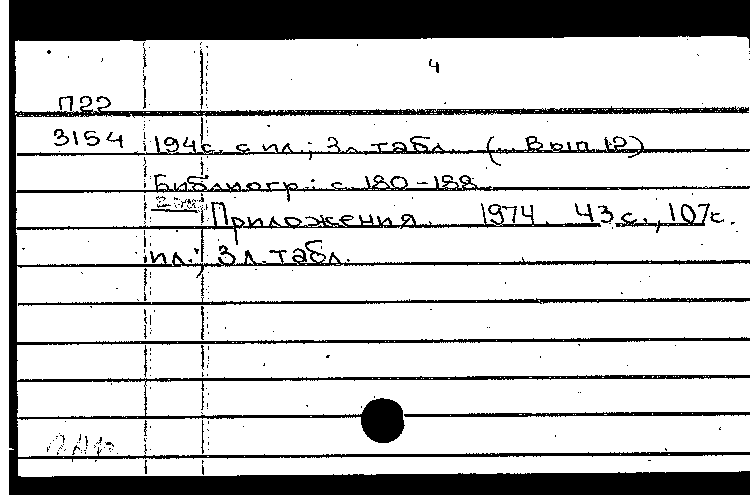 4
П22
3154 194с. с ил.; 3л. табл. (Вып 12)
Библиогр.: с. 180-188
Приложения. 1974. 43 с., 107с.
ил.; 3 л. табл.